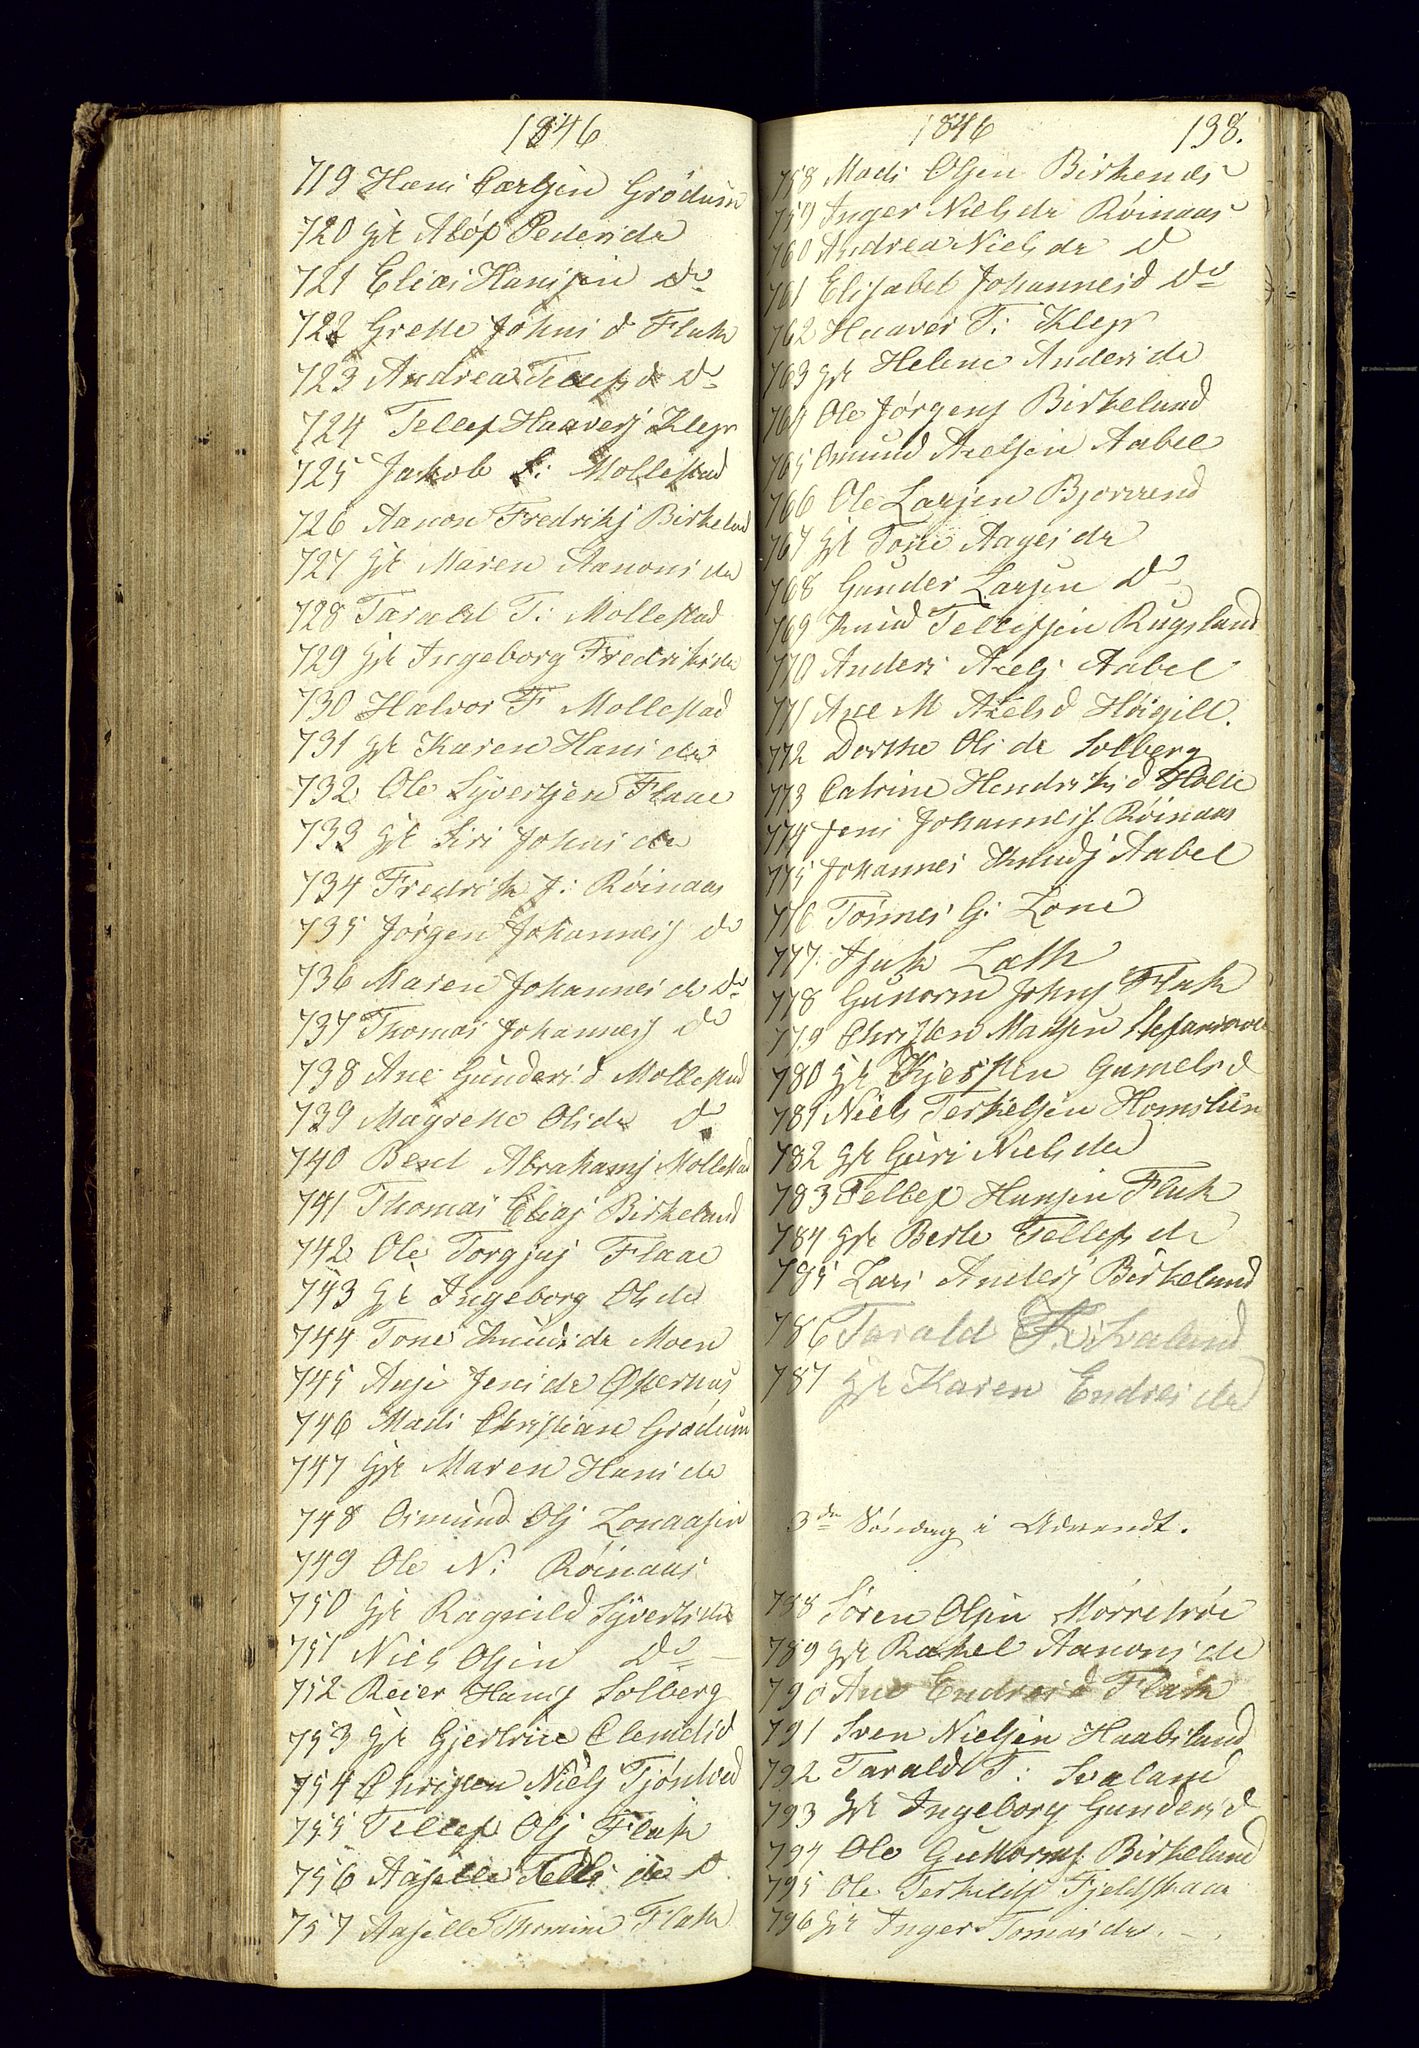 1846
719 Hans Carlsen Grödum
720 gk Aløf Pedersdr
721 Elias Hansen Do
722 Grethe Johns d Flak
723 Andrea Tellefs d Do
724 Tellef Haavers Klep
725 Jakob L: Mollestad
726 Aanon Fredriks Birkelad
727 gk Maren Aanons da
728 Tarald T: Mollestad
729 gk Ingeborg Fredriksda
730 Halvor F Mollestad
731 gk Karen Hans da
732 Ole Syvertsen Flaae
733 gk Siri Johns da
734 Fredrik J: Röinaas
735 Jørgen Johannes do
736 Maren Johannes da Do
737 Thomas Johannes do
738 Ane Gunders d Mollestad
739 Magrethe Olsda Do
740 Bent Abrahams Mollestad
741 Thomas Elias Birkeland
742 Ole Torgjus Flaae
743 gk Ingeborg Olsda
744 Tone Knudsda Moen
745 Anje Jensda
746 Mads Christian Grødum
747 gk Maren Hans da
748 Osmund Ols
749 Ole N: Röinaas
750 gk Ragnild Syvertsda
751 Niels Olsen Do
752 Reier Hans Solberg
753 gk Gjertrue
754 Christen Niels Tjöntved
755 Tellef Ols Flak
756 Aasille da D
757 Aasille Flak
1846 198.
758 Mads Olsen Birkenes
759 Inger Nielsda Röinaas
760 Andrea Nielsda D
761 Elisabet Johannesd Do
762 Haaver T: Klep
763 gk Helene Andersda
764 Ole Jørgens Birkeland
765 Osmund Axelsen Aabel
766 Ole Larsen
767 gk Tone Aagesda
768 Gunder Larsen Do
769 Knud Tellefsen Rugsland
770 Anders Axels Aabel
771 Ane M Axelsd Höigilt.
772 Dorthe Olsda Solberg
773 Catrine Hendriksd
774 Jens Johannes Röinaas
775 Johannes Knuds Aabel
776 Tönnes G: Lone
777. Isak Læth
778 Gunorm Johns Flak
779 Christen Madsen
780 gk Kjersten Gumelsd
781 Niels Terkelsen
782 gk Guri Nielsda
783 Tellef Hansen Flak
784 gk Berte Tellefsda
785 Lars Anders Birkeland
786 Tarald T. Svaland
787 gk Karen Endresda
3de Söndag i Advendt.
788 Sören Olsen Mörretröe
789 gk Rakel Aanonsda
790 Ane Endresd Flak
791 Sven Nielsen Haabesland
792 Tarald T: Svaland
793 gk Ingeborg Gundersd
794 Ole Guttorms Birkeland
795 Ole Terkelds Fjeldskaar
796 gk Inger Tomasda.